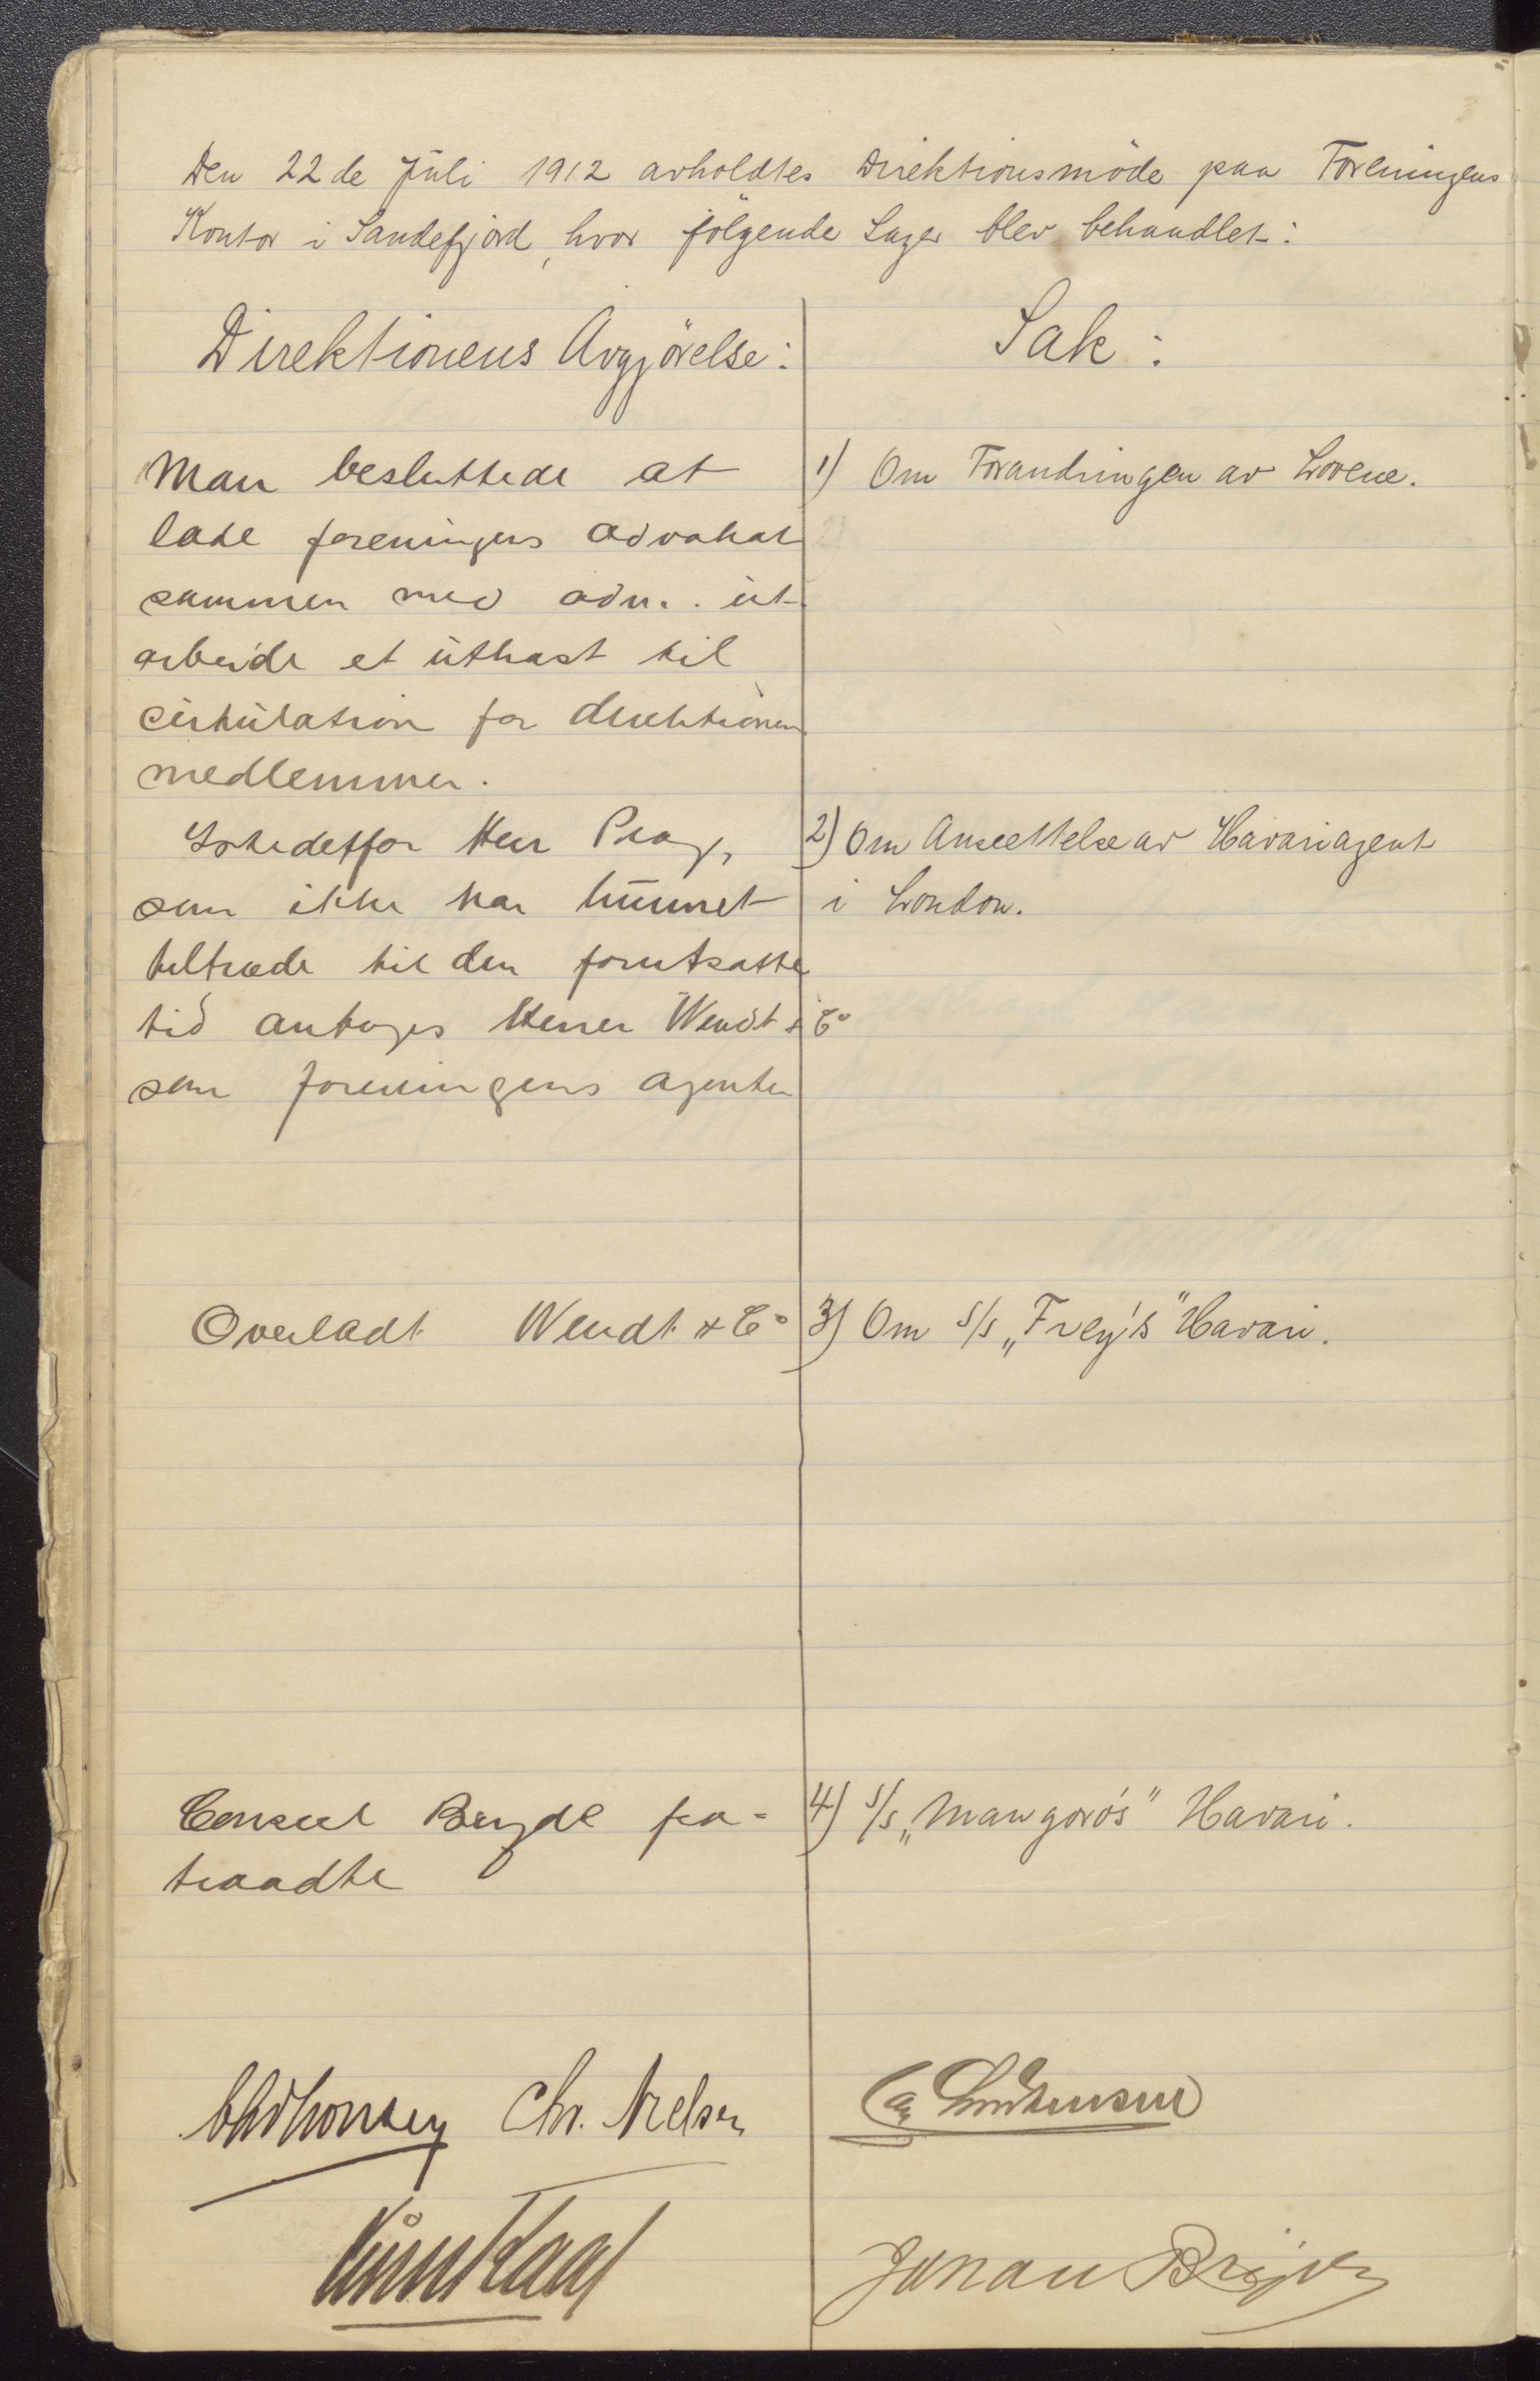 Den 22de Juli 1912 avholdtes Direktionsmöde paa Foreningens
Kontor i Sandefjord, hvor fölgende Sager blev behandlet:
Direktionens Avgjörelse:
Man besluttede at
lade foreningens advokat
sammen med adm. ut-
arbeide et utkast til
cirkulation for direktionens
medlemmer.
Istedetfor Herr Prag,
som ikke har kunnet
tiltræde til den forutsatte
tid antoges Herrer Wendt & Co
som foreningens agenter
Overladt Wendt & Co
Consul Bryde fra-
traadte
Sak:
1) Om Forandringen av Lovene.
2) Om Ansettelse av Havariagent
i London.
3) Om S/S „Frey's" Havari.
4) S/S „Mangoro's" Havari.
Chr. Nielsen
Johan Bryde